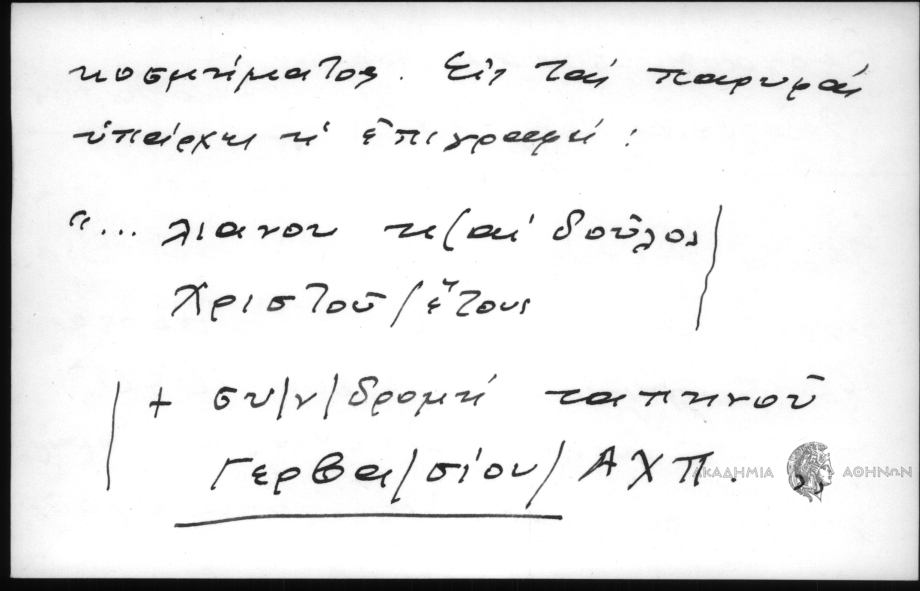 κοσμήματος. Εἰς τὰς παρυφὰς
ὑπάρχει ἡ ἐπιγραφή:
"... λιανου κ(αὶ δοῦλος
Χριστοῦ/ἔτους
+ συ/ν/δρομὴ ταπηνοῦ
Γερβα/σίου/ ΑΧΠ. "
ΑΚΑΔΗΜΙΑ ΑΘΗΝΩΝ